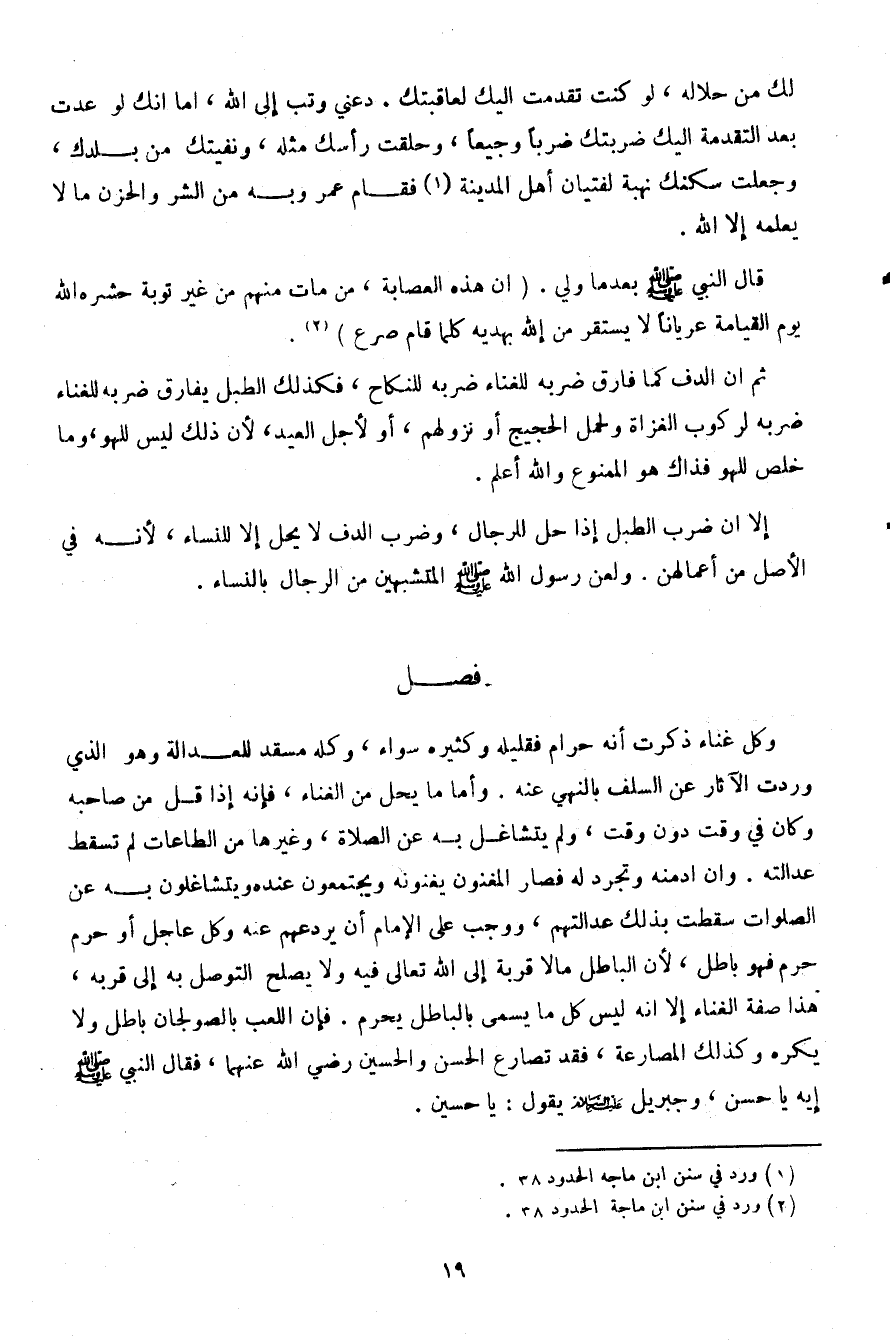 لك من حلاله ، لو كنت تقدمت اليك لعاقبتك . دعني وتب إلى الله ، اما انك لو عدت
بعد التقدمة اليك ضربتك ضرباً وجيعاً ، وحلقت رأسك مثله ، ونفيتك من بلدك ،
وجعلت سكنك نهبة لفتيان أهل المدينة (١) فقام عمر وبه من الشر والحزن ما لا
يعلمه إلا الله .
قال النبي ﷺ بعدما ولي . ( ان هذه العصابة ، من مات منهم من غير توبة حشره الله
يوم القيامة عرياناً لا يستقر من إلله بهديه كلما قام صرع ) (٢) .
ثم ان الدف كما فارق ضربه للغناء ضربه للنكاح ، فكذلك الطبل يفارق ضربه للغناء
ضربه لركوب الغزاة ولحمل الحجيج أو نزولهم ، أو لأجل العيد، لأن ذلك ليس للهو،وما
خلص للهو فذاك هو الممنوع والله أعلم .
إلا ان ضرب الطبل إذا حل للرجال ، وضرب الدف لا يحل إلا للنساء ، لأنه في
الأصل من أعمالهن . ولعن رسول الله ﷺ المتشبهين من الرجال بالنساء .
فصل
وكل غناء ذكرت أنه حرام فقليله وكثيره سواء ، وكله مسقد للعدالة وهو الذي
وردت الآثار عن السلف بالنهي عنه . وأما ما يحل من الغناء ، فإنه إذا قل من صاحبه
وكان في وقت دون وقت ، ولم يتشاغل به عن الصلاة ، وغيرها من الطاعات لم تسقط
عدالته . وان ادمنه وتجرد له فصار المغنون يغنونه ويجتمعون عنده ويتشاغلون به عن
الصلوات سقطت بذلك عدالتهم ، ووجب على الإمام أن يردعهم عنه وكل عاجل أو حرم
حرم فهو باطل ، لأن الباطل مالا قربة إلى الله تعالى فيه ولا يصلح التوصل به إلى قربه ،
هذا صفة الغناء إلا انه ليس كل ما يسمى بالباطل يحرم . فإن اللعب بالصولجان باطل ولا
يكره وكذلك المصارعة ، فقد تصارع الحسن والحسين رضي الله عنهما ، فقال النبي ﷺ
إيه يا حسن ، وجبريل عليه السلام يقول : يا حسين .
(١) ورد في سنن ابن ماجه الحدود ٣٨ .
(٢) ورد في سنن ابن ماجة الحدود ٣٨ .
١٩